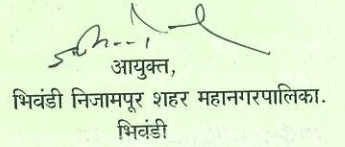 आयुक्त,
भिवंडी निजामपूर शहर महानगरपालिका.
भिवंडी